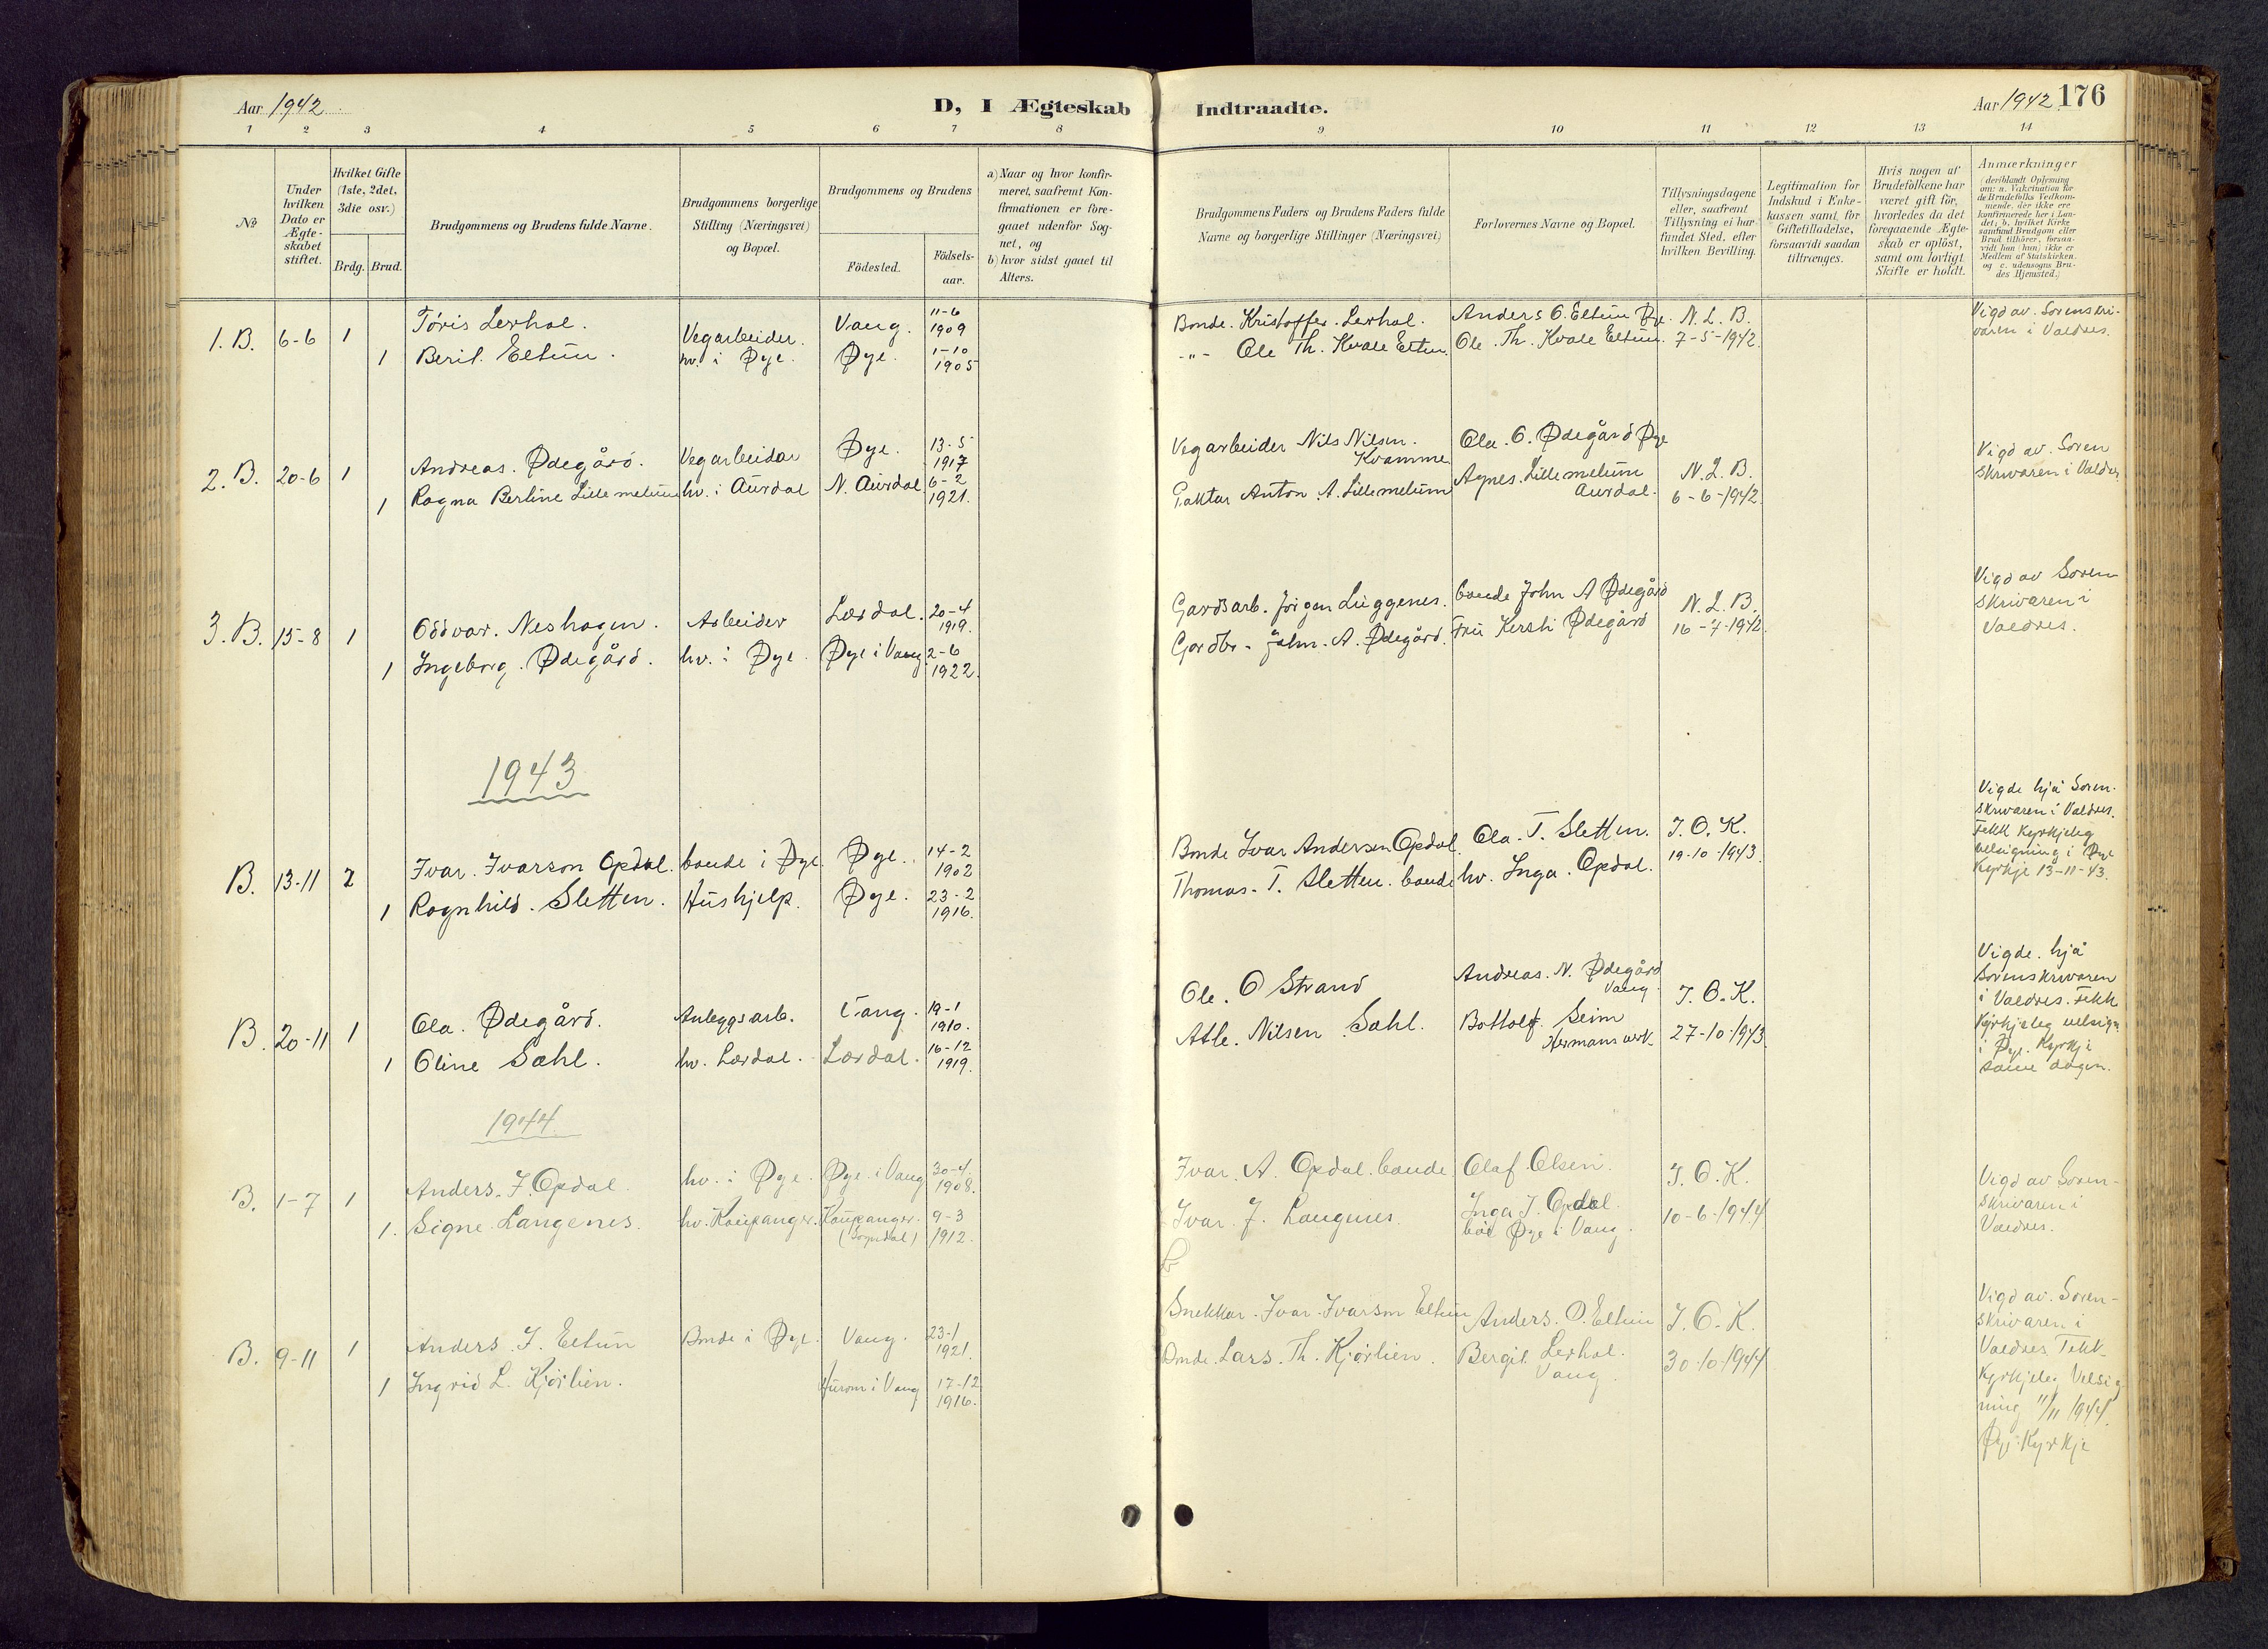 Aar 1942
D, I Ægteskab Indtraadte.
Aar 1942 176
1 2 3 4 5 6 7 8 9 10 11 12 13 14
№
Under hvilken Dato er Ægteskabet stiftet.
Hvilket Gifte (1ste, 2det, 3die osv.)
Brdg. Brud.
Brudgommens og Brudens fulde Navne.
Brudgommens borgerlige Stilling (Næringsvei) og Bopæl.
Brudgommens og Brudens
Födested.
Födselsaar.
a) Naar og hvor konfirmeret, saafremt Konfirmationen er foregaaet udenfor Sognet, og
b) hvor sidst gaaet til Alters.
Brudgommens Faders og Brudens Faders fulde Navne og borgerlige Stillinger (Næringsvei)
Forlovernes Navne og Bopæl.
Tillysningsdagene eller, saafremt Tillysning ei har fundet Sted, efter hvilken Bevilling.
Legitimation for Indskud i Enkekassen samt for Giftetilladelse, forsaavidt saadan tiltrænges.
Hvis nogen af Brudefolkene har været gift för, hvorledes da det foregaaende Ægteskab er oplöst, samt om lovligt Skifte er holdt.
Anmærkninger (deriblandt Oplysning om: a. Vakcination for de Brudefolks Vedkommende, der ikke ere konfirmerede her i Landet, b. hvilket Kirkesamfund Brudgom eller Brud tilhörer, forsaavidt han (hun) ikke er Medlem af Statskirken. og c. udensogns Brudes Hjemsted.)
1. B. 6-6 1 Töris Lerhol. Vegarbeider. Vang. 11-6 1909 Bonde. Kristoffer. Lerhol. Anders O. Eltun Øye. N. L. B. Vigd av. Sorenskrivaren i Valdres.
1 Berit. Eltun. hv. i Øye. Øye. 1-10 1905 -"- Ole Th. Kvale Eltun. Ole. Th. Kvale Eltun. 7-5-1942.
2. B. 20-6 1 Andreas. Ødegård. Vegarbeidar Øye. 13-5 1917 Vegarbeider Nils Nilsen. Kvamme Ola. O. Ødegård Øye N. L. B. Vigd av. Sorenskrivaren i Valdres
1 Ragna Berline Lillemelum hv. i Aurdal N. Aurdal 6-2 1921. Anton. A. Lillemelum Agnes. Lillemelum Aurdal. 6-6-1942
3. B. 15-8 1 Oddvar. Neshagen. Arbeider Lærdal. 20-4 1919. Gardsarb. Jörgen Luggenes. bonde John A Ødegård N. L. B. Vigd av Sorenskrivaren i Valdres.
1 Ingeborg. Ødegård. hv. i Øye Øye i Vang 2-6 1922. Gardbr. John. A. Ødegård. Fru Kersti Ødegård 16-7-1942.
1943
B. 13-11 2 Ivar. Ivarson Opdal. bonde i Øye. Øye. 14-2 1902 Bonde Ivar Andersen Opdal. Ola. T. Sletten. J. O. K. Vigde hjå Sorenskrivaren i Valdres. Fekk kyrkjeleg velsigning i Øye Kyrkje 13-11-43.
1 Ragnhild. Sletten. Hushjelp. Øye. 23-2 1916. Thomas. T. Sletten. bonde hv. Inga. Opdal. 19-10-1943.
B. 20-11 1 Ola. Ødegård. Anleggsarb. Vang. 19-1 1910. Ole. O Strand Andreas. N. Ødegård Vang. J. O. K. Vigde. hjå Sorenskrivaren i Valdres. Fekk Kyrkjeleg velsign. i Øye. Kyrkje same dagen.
1 Oline Sæhl. hv. Lærdal. Lærdal. 16-12 1919. Atle. Nilsen Sæhl. Bottolf. Seim Hermansverk. 27-10-1943.
1944
B. 1-7 1 Anders. I. Opdal. hv. i Øye. Øye i Vang 30-4. 1908. Ivar. A. Opdal. bonde Olaf Olsen. J. O. K. Vigd av Sorenskrivaren i Valdres.
1. Signe Langenes. hv. Kaupanger. Kaupanger. (Sogndal) 9-3 1912. Ivar. J. Langenes. Inga I. Opdal. Øye i Vang. 10-6-1944
B. 9-11 1 Anders. I. Eltun Bonde i Øye. Vang. 23-1 1921. Snekkar. Ivar. Ivarson Eltun Anders. O. Eltun J. O. K. Vigd av. Sorenskrivaren i Valdres. Fekk Kyrkjeleg Velsigning 11/11 1944. Øye Kyrkje
1 Ingrid L. Kjörlien. Hurom i Vang 17-12 1916. Bonde. Lars. Th. Kjörlien. Bergit. Lerhol. Vang. 30-10-1944